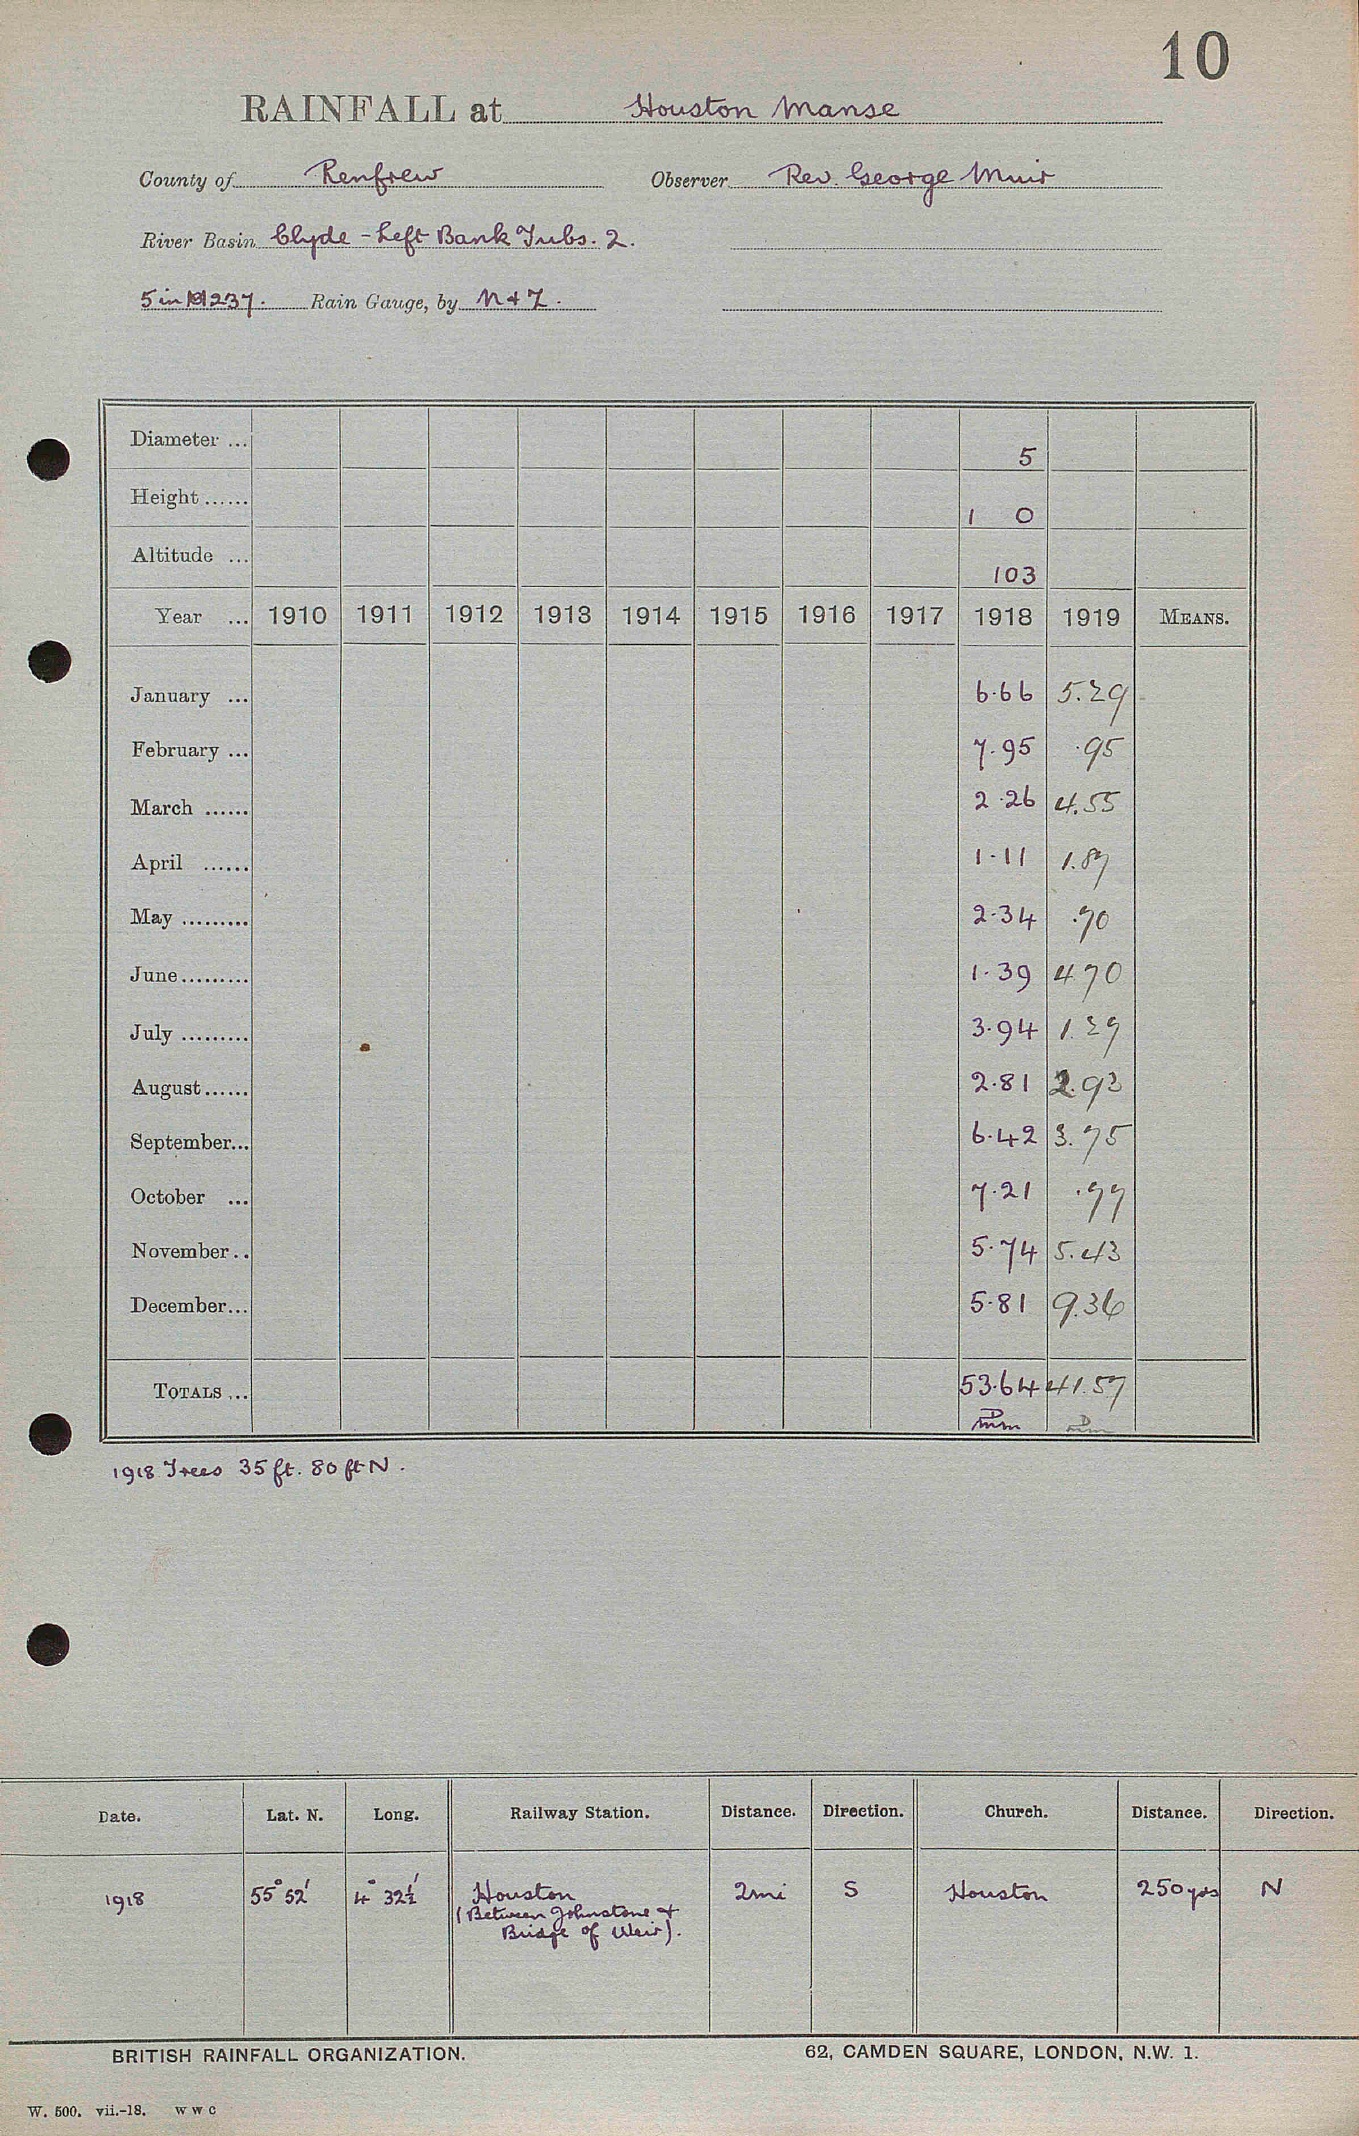 10
RAINFALL at Houston Manse
County of Renfrew Observer Rev. George Muir
River Basin Clyde - Left Bank Tubs. 2.
5 in Rain Gauge, by N & Z.
Diameter ... 5
Height ...... 1 0
Altitude ... 103
Year ... 1910 1911 1912 1913 1914 1915 1916 1917 1918 1919 MEANS.
January ... 6.66 5.29
February ... 7.95 .95
March ...... 2.26 4.55
April ...... 1.11 1.87
May ......... 2.34 .70
June ......... 1.39 4.70
July ......... 3.94 1.29
August ...... 2.81 2.93
September... 6.42 3.75
October ... 7.21 .77
November .. 5.74 5.43
December... 5.81 9.36
TOTALS ... 53.64 41.57
1918 Trees 35 ft. 80 ft N.
Date. Lat. N. Long. Railway Station. Distance. Direction. Church. Distance. Direction.
1918 55° 52' 4° 32½' Houston 2 mi S Houston 250 yds N
(Between Johnstone &
Bridge of Weir).
BRITISH RAINFALL ORGANIZATION. 62, CAMDEN SQUARE, LONDON, N.W. 1.
W. 500. vii.-18. W W C